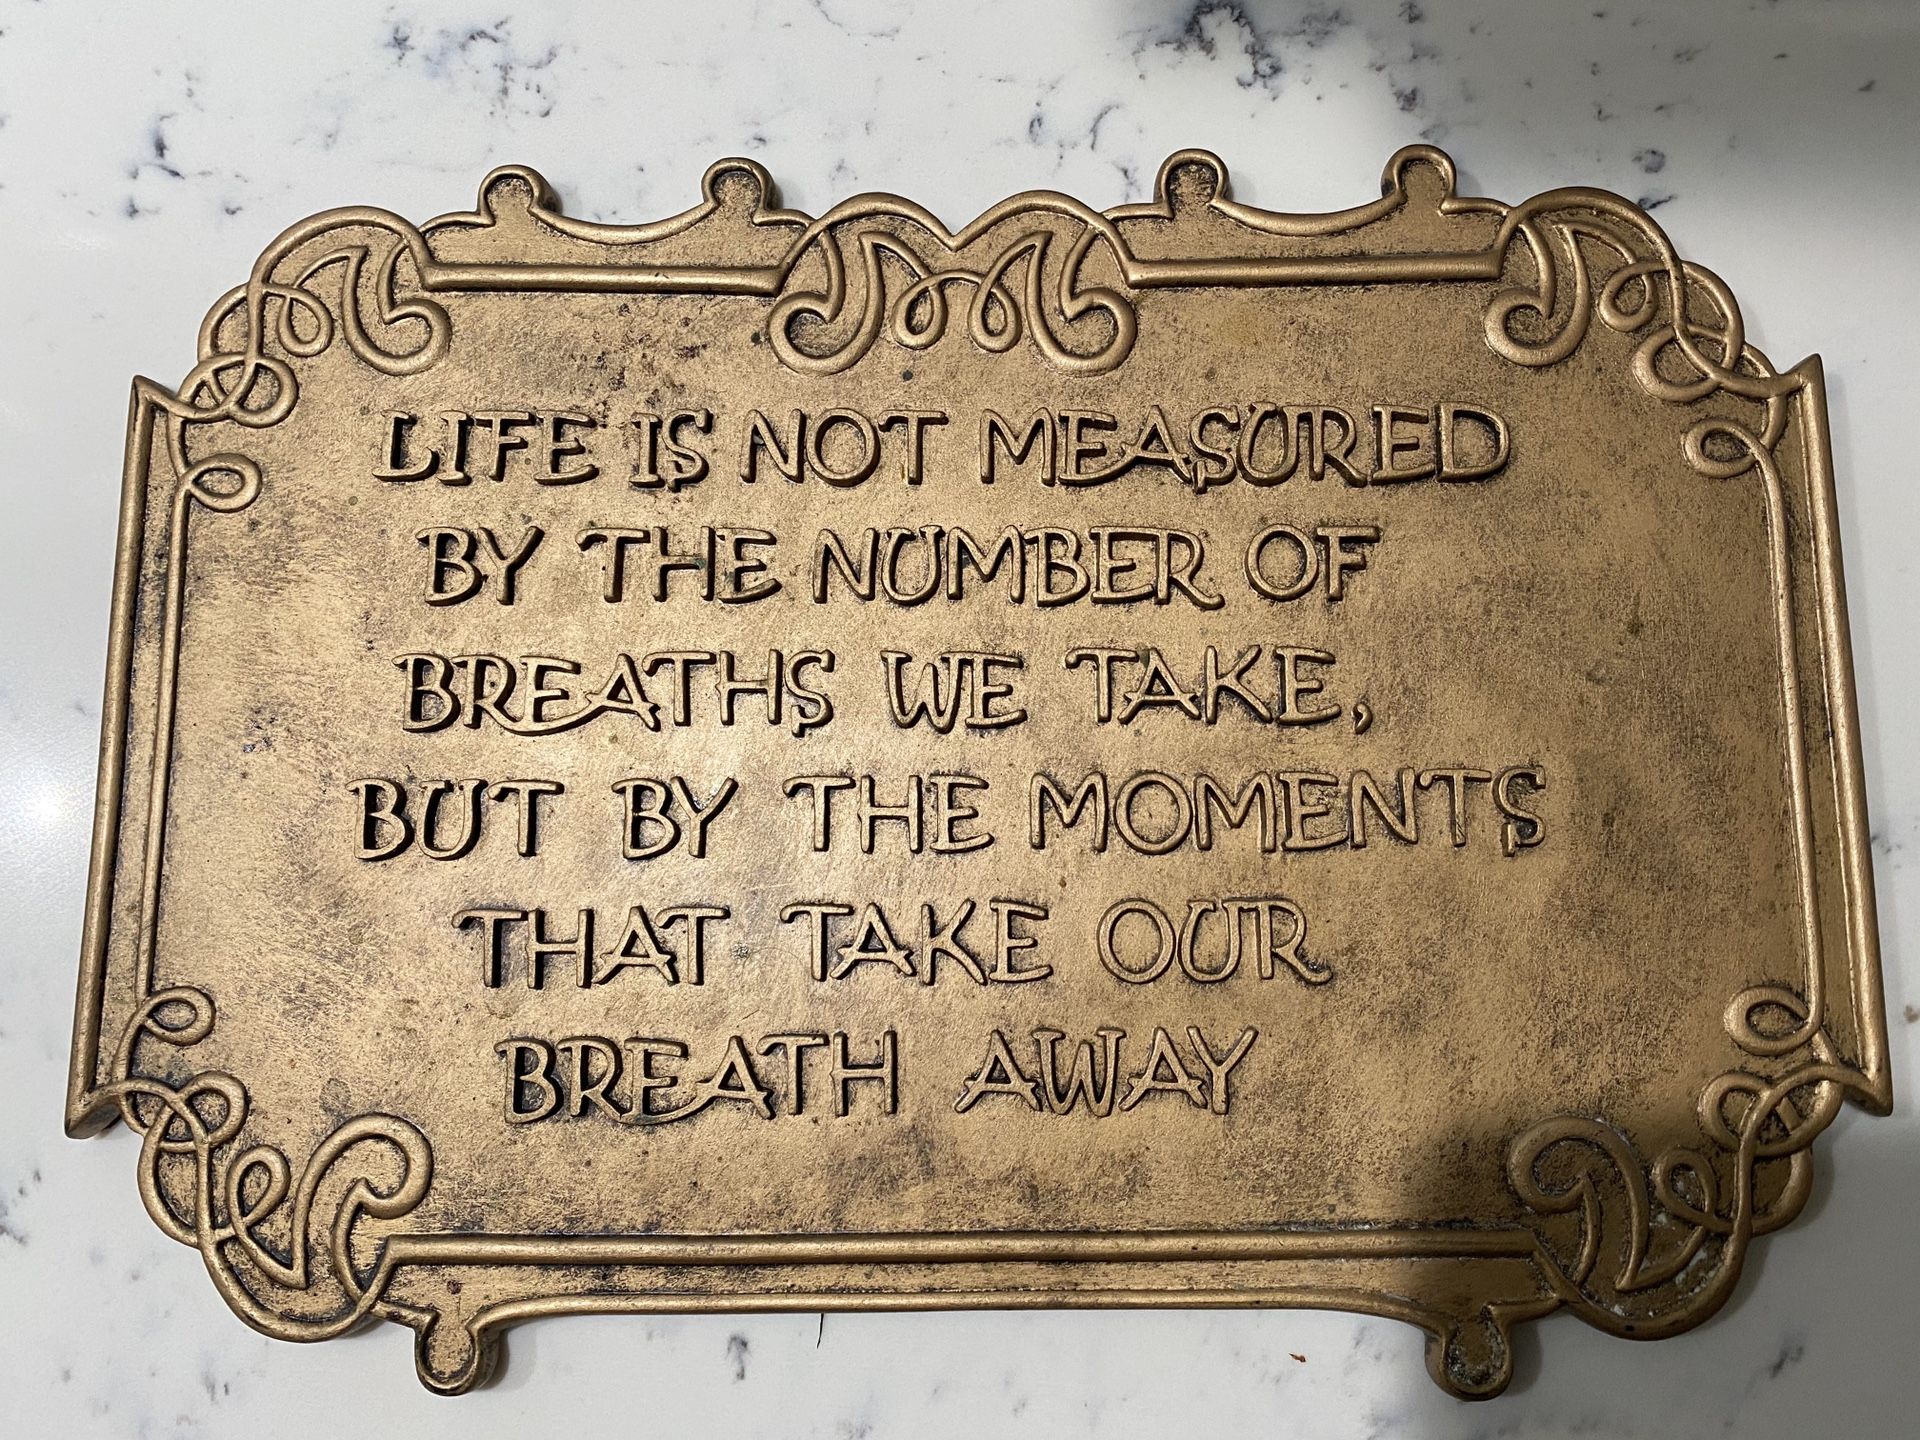 LIFE IS NOT MEASURED
BY THE NUMBER OF
BREATHS WE TAKE,
BUT BY THE MOMENTS
THAT TAKE OUR
BREATH AWAY